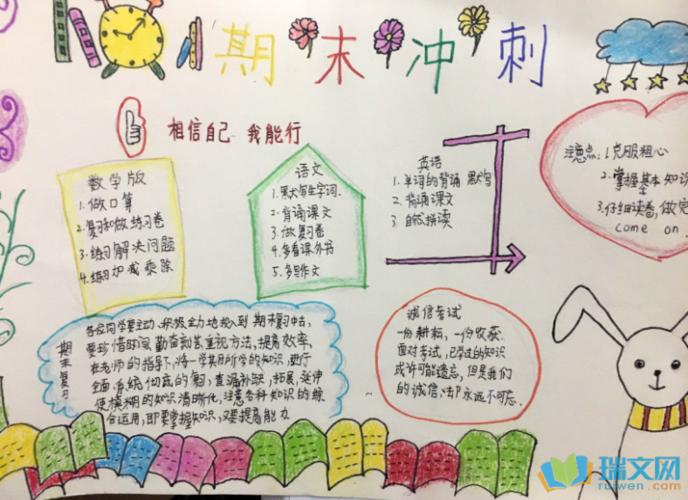 期末冲刺
相信自己 我能行
数学版
1.做口算
2.复习和做练习卷
3.练习解决问题
4.练习加减乘除
语文
1.默写生字词.
2.背诵课文
3.做复习卷
4.多看课外书
5.多写作文
英语
1.单词的背诵 默写
2.背诵课文
3.自然拼读
注意点:1.克服粗心
2.掌握基本知识
3.仔细读卷,做完
come on
期末复习
各位同学要主动、积极全力地投入到期末复习中去,
要珍惜时间 勤奋刻苦重视方法,提高效率,
在老师的指导下,将一学期所学的知识,进行
全面 系统 彻底的复习,查漏补缺,拓展,延伸
使模糊的知识清晰化,注意各科知识的综
合运用,即要掌握知识,又要提高能力
诚信考试
一份耕耘,一份收获.
面对考试,已学过的知识
或许可能遗忘,但是我们
的诚信,永远不可忘.
瑞文网
ruiwen.com